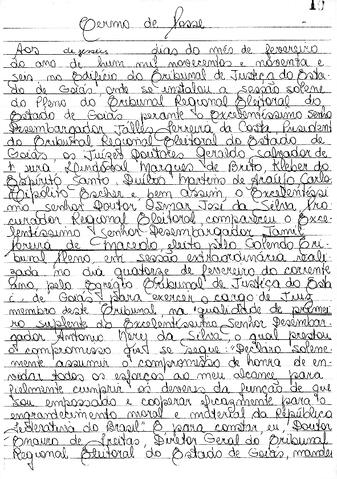 Termo de Posse
Aos dezesseis dias do mês de fevereiro
do ano de hum mil novecentos e noventa e
seis, no Edifício do Tribunal de Justiça do Esta-
do de Goiás, onde se instalou a sessão solene
do Pleno do Tribunal Regional Eleitoral do
Estado de Goiás, perante o Excelentíssimo Senhor
Desembargador Jalles Ferreira da Costa, Presidente
do Tribunal Regional Eleitoral do Estado de
Goiás, os Juízes Doutores Geraldo Salvador de
Moura, Marques de Brito, Kleber do
Espírito Santo, Martins de Araújo, Carlos
Hipólito Escher e bem assim o Excelentíssi-
mo senhor Doutor Osmar José da Silva, Pro-
curador Regional Eleitoral, compareceu o Exce-
lentíssimo Senhor Desembargador Jamil
Pereira de Macedo, eleito pelo Colendo Tri-
bunal Pleno, em sessão extraordinária reali-
zada no dia quatorze de fevereiro do corrente
ano, pelo Egrégio Tribunal de Justiça do Esta-
do de Goiás para exercer o cargo de Juiz
membro deste Tribunal, na qualidade de primei-
ro suplente do Excelentíssimo Senhor Desembar-
gador Antonio Nery da Silva, o qual prestou
o compromisso que se segue: "Declaro solene-
mente assumir o compromisso de honra de en-
vidar todos os esforços ao meu alcance para
fielmente cumprir os deveres da função de que
sou empossado e cooperar eficazmente para o
engrandecimento moral e material da República
Federativa do Brasil". E para constar, eu, Doutor
Mauro de Freitas, Diretor Geral do Tribunal
Regional Eleitoral do Estado de Goiás, mandei